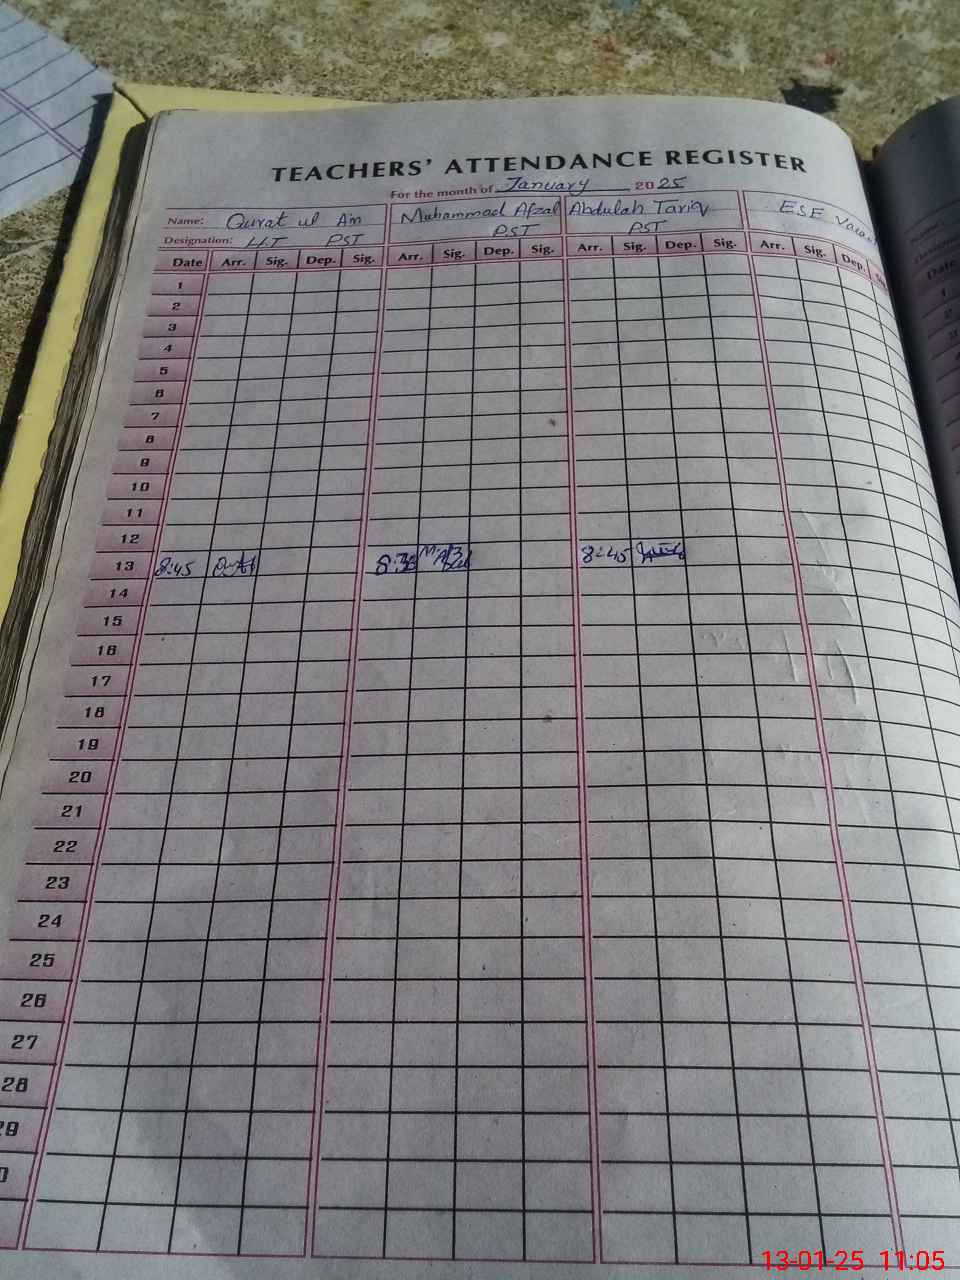 TEACHERS' ATTENDANCE REGISTER
For the month of January 2025
Name: Qurat ul Ain Muhammad Afzal Abdulah Tariq ESE
Designation: PST PST PST
Date Arr. Sig. Dep. Sig. Arr. Sig. Dep. Sig. Arr. Sig. Dep. Sig. Arr. Sig. Dep.
1
2
3
4
5
6
7
8
9
10
11
12
13 8:45 8:45
14
15
16
17
18
19
20
21
22
23
24
25
26
27
28
29
13-01-25 11:05